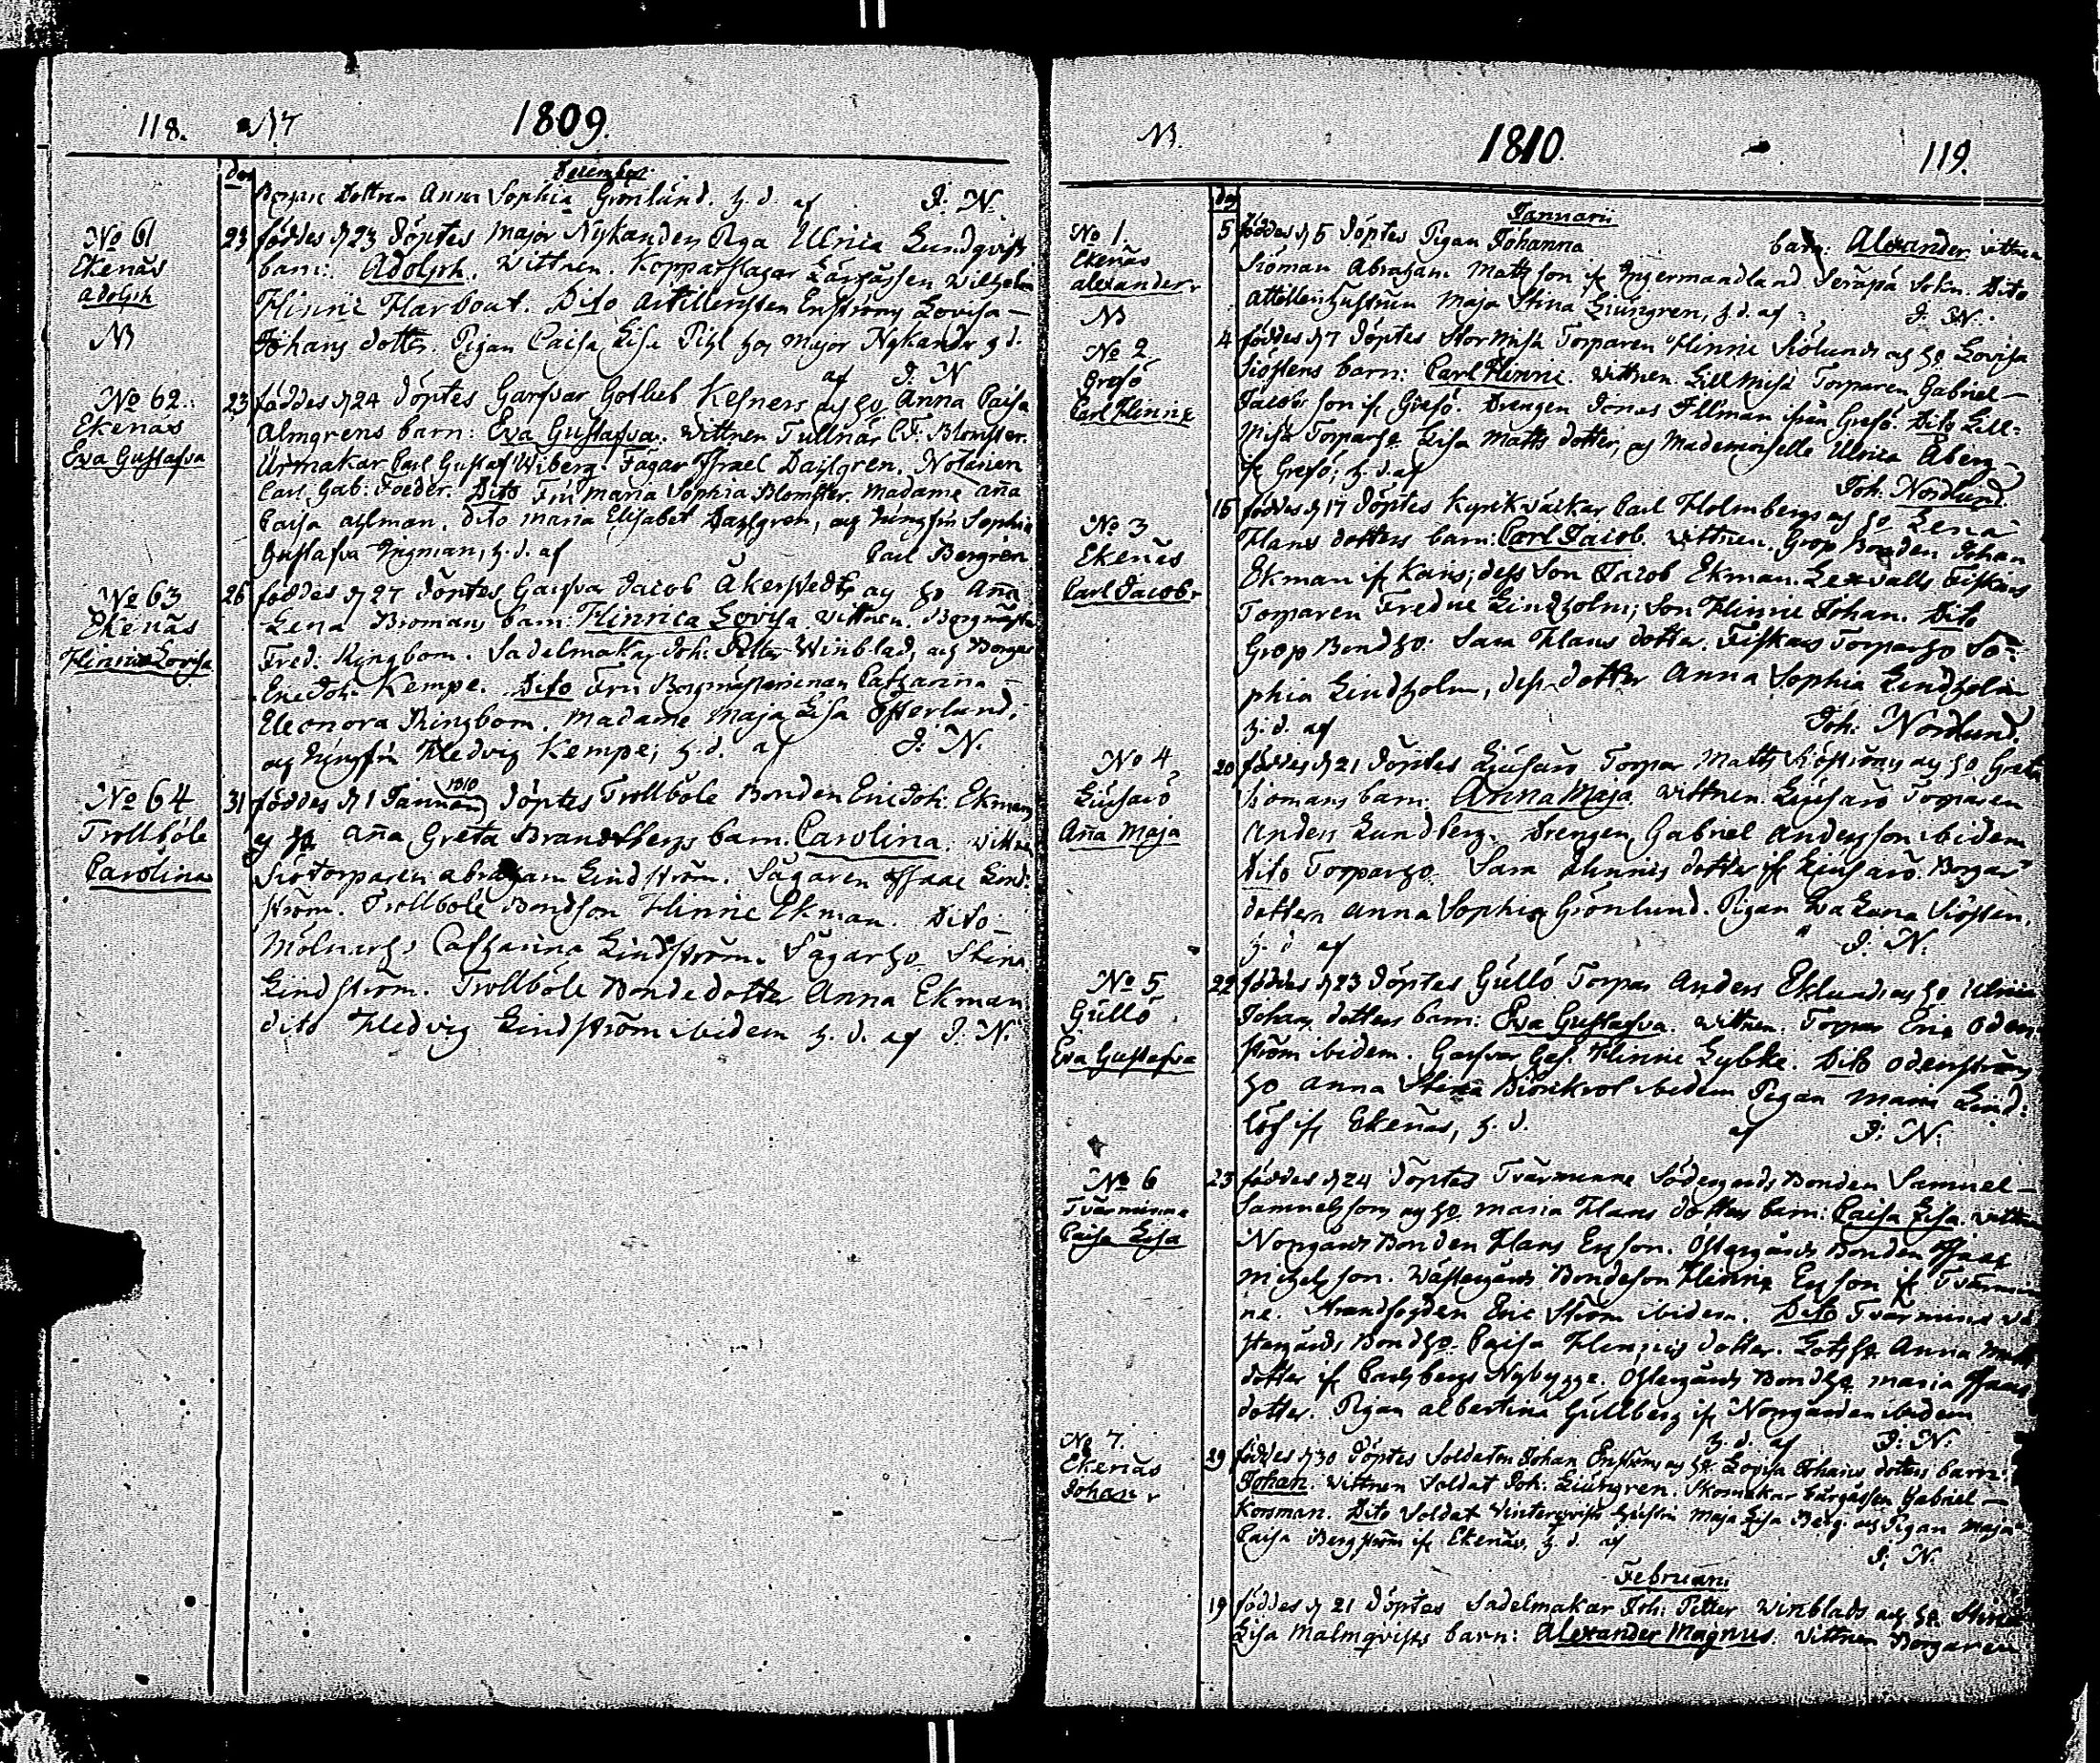 118.
1809.
den
December
Borgare Dottren Anna Sophia Grönlund. h. d. af J: N.
No 61
Ekenäs
Adolph
NB
23 föddes d 23 döptes Major Nykanders Piga Ulrica Lundqvists
barn: Adolph. Wittnen. Kopparslagar Lärgåssen Wilhelm
Hinric Harbout. Dito Artilleristen Enströms Lovisa
Johans dotter. Pigan Caisa Lisa Pihl hos Major Nykander h d.
af J. N
No 62.
Ekenäs
Eva Gustafva
23 föddes d 24 döptes Garfvar Gotlieb Kesners och ho Anna Caisa
Almgrens barn: Eva Gustafva. Wittnen Tullnär C. F. Blomster.
Urmakar Carl Gustaf Wiberg. Fagar Israel Dahlgren. Notarien
Carl Gab: Foeder. Dito Fru Maria Sophia Blomster. Madame Aña
Caisa Ahlman. dito Maria Elisabet Dahlgren, och Jungfru Sophia
Gustafva Ingman, h. d. af Carl Bergren
No 63
Ekenäs
Hinrica Lovisa
26 föddes d 27 döptes Garfvar Jacob Åkerstedts och ho Aña
Lena Bromans barn: Hinrica Lovisa. Wittnen. Borgmäst.
Fred. Ringbom. Sadelmakar Joh: Petter Winblad, och Borgar
Eric Joh. Kempe. Dito Fru Borgmästarinnan Catharina
Eleonora Ringbom. Madame Maja Lisa Österlund,
och Jungfru Hedvig Kempe, h. d. af J. N.
No 64
Trollböle
Carolina
31 föddes d 1 Januarii 1810 döptes Trollböle Bonden Eric Joh: Ekmans
och ho Aña Greta Brandtbergs barn. Carolina. Wittnen
Siötorparen Abraham Lindström. Sågaren Isaac Lind-
ström. Trollböle Bondson Hinric Ekman. Dito
Molnarho Catharina Lindström. Sågarho Stina
Lindström. Trollböle Bondedotter Anna Ekman
dito Hedvig Lindström ibidem h. d. af J. N.
NB.
1810.
119.
den
Januarii
No 1.
Ekenäs
Alexander
NB
5 föddes d 5 döptes Pigan Johanna barn: Alexander. Wittnen
Siöman Abraham Mattsson if Ingermandland Serapå Sokn. Dito
Attolleri hustrun Maja Stina Liungren, h. d. af J. N.
No 2
Gresö
Carl Hinric
4 föddes d 7 döptes Storniså Torparen Hinric Siölunds och ho Lovisa
Siöstens barn: Carl Hinric. Wittnen. Lillniså Torparen Gabriel
Jacobsson if Gresö. Drengen Jonas Illman ifrån Gresö. Dito Lill-
niså Torparho Lisa Matts dotter, och Mademoiselle Ulrica Åberg
if Gresö; h. d. af
Joh. Nordlund.
No 3
Ekenäs
Carl Jacob
15 föddes d 17 döptes Kyrkväktar Carl Holmbergs och ho Lena
Hans dotters barn: Carl Jacob. Wittnen. Grop Bonden Johan
Ekman if Karis; dess Son Jacob Ekman. Lexvalls Fiskars
Torparen Fredric Lindholm; Son Hinric Johan. Dito
Grop Bondho. Sara Hans dotter. Fiskars Torparho So-
phia Lindholm, dess dotter Anna Sophia Lindholm
h. d. af Joh: Nordlund.
No 4
Liusarö
Aña Maja
20 föddes d 21 döptes Liusarö Torpar Matts Siöströms och ho Greta
Siömans barn: Anna Maja. Wittnen Liusarö Torparen
Anders Lundberg. Drengen Gabriel Andersson ibidem
Dito Torparho. Sara Hinrics dotter if Liusarö. Borgar
dottren Anna Sophia Grönlund. Pigan Eva Lena Siösten,
h. d af J. N.
No 5
Gullö
Eva Gustafva
22 föddes d 23 döptes Gullö Torpar Anders Eklunds och ho Ulrica
Johans dotters barn: Eva Gustafva. Wittnen. Torpar Eric Oden-
ström ibidem. Garfvar Ges. Hinric Lybke. Dito Odenströms
ho Anna Stina Biörkvol ibidem Pigan Maria Lind-
löf if Ekenäs, h. d. af J. N.
No 6
Tvärminne
Caisa Lisa
23 föddes d 24 döptes Tvärminne Södergårds Bonden Samuel
Samuelssons och ho Maria Hans dotters barn: Caisa Lisa. Wittnen
Norrgårds Bonden Hans Ersson. Östergårds Bonden Isaac
Michelsson. Wästergårds Bondeson Hinric Ersson if Tvärmin
ne. Strandfogden Eric Ström ibidem. Dito Tvärminne Wä
stergårds Bondho. Caisa Hinrics dotter. Lotsho. Anna Matts
dotter if Carlsbergs Nybygge. Östergårds Bondho. Maria Isaacs
dotter. Pigan Albertina Gullberg if Norrgården ibidem
h. d. af J: N.
No 7.
Ekenäs
Johan
29 föddes d 30 döptes Soldaten Johan Enströms och ho. Lovisa Johans dotters barn:
Johan. Wittnen Soldat Joh. Liungren. Skomakar Lärgåssen Gabriel
Korsman. Dito Soldat Vinterqvists hustru Maja Lisa Berg. och Pigan Maja
Caisa Bergström if Ekenäs, h. d. af J. N.
Februarii
19 föddes d 21 döptes Sadelmakar Joh: Petter Winblads och ho. Stina
Lisa Malmqvists barn: Alexander Magnus. Wittnen Borgaren